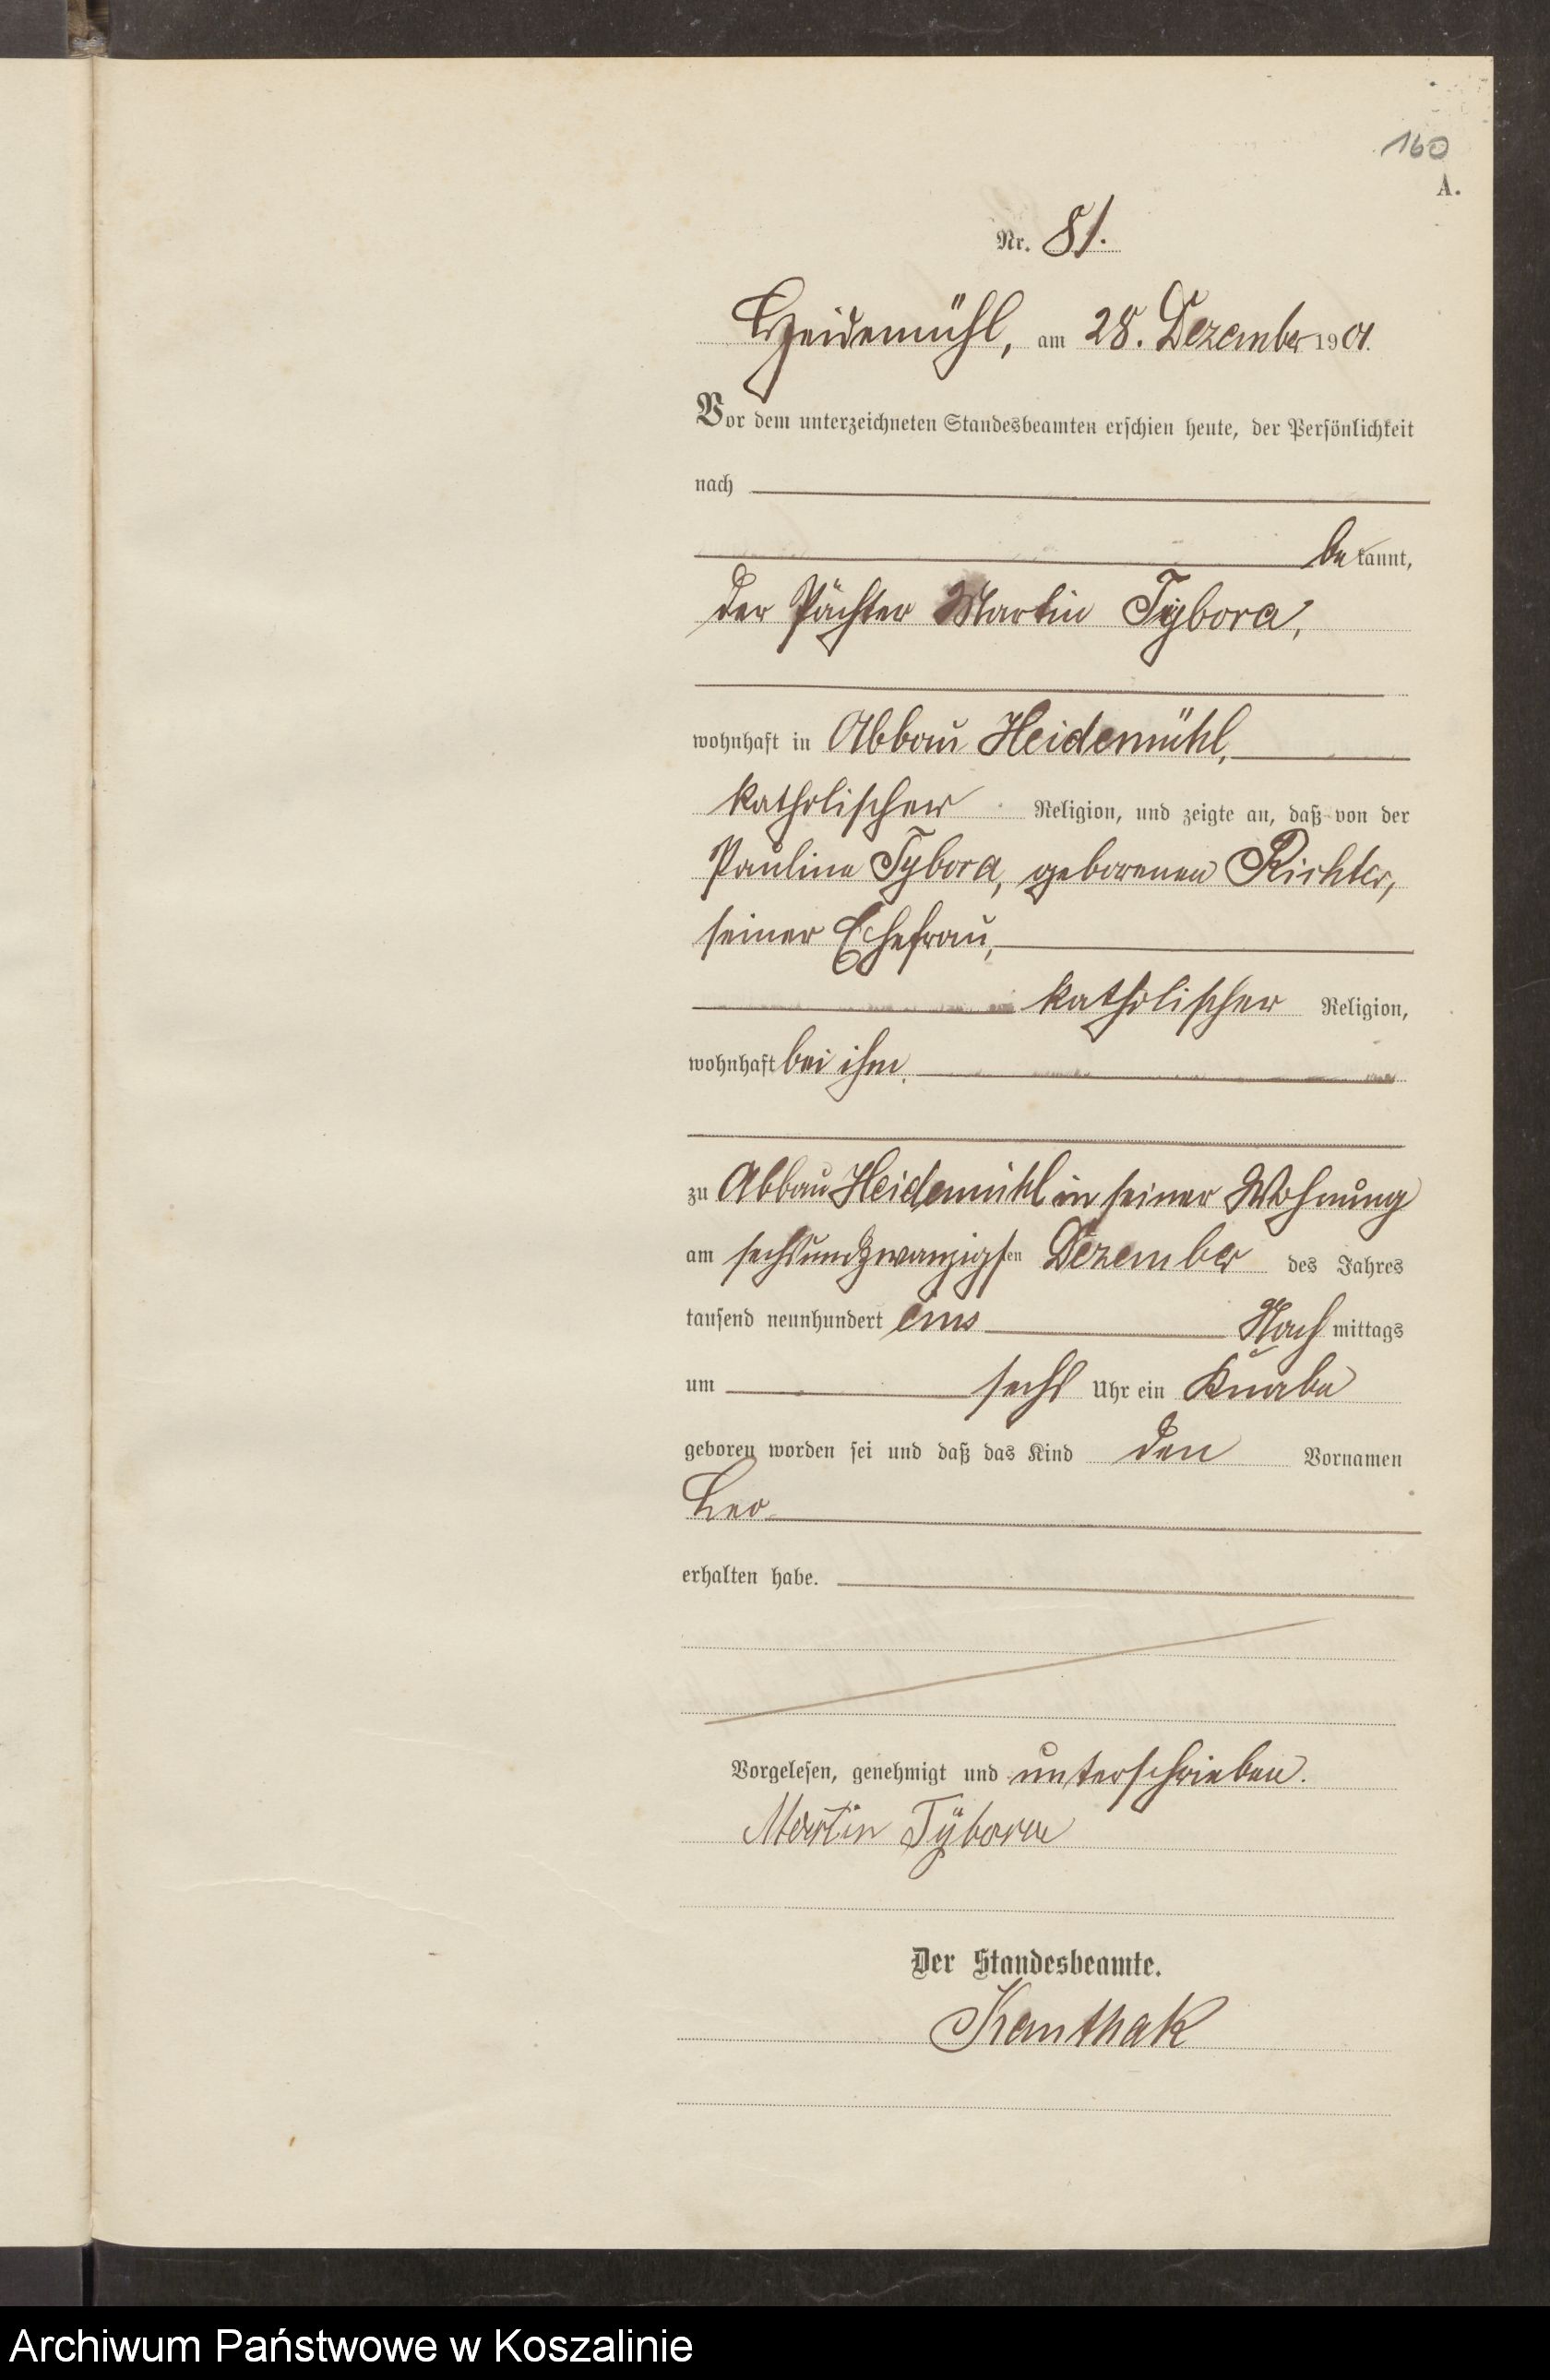 160
A.
Nr. 81.
Heidemühl, am 28. Dezember 1901.
Vor dem unterzeichneten Standesbeamten erschien heute, der Persönlichkeit
nach
bekannt,
der Pächter Martin Tybora,
wohnhaft in Abbau Heidemühl,
katholischer Religion, und zeigte an, daß von der
Pauline Tybora, geborenen Richter,
seiner Ehefrau,
katholischer Religion,
wohnhaft bei ihm,
zu Abbau Heidemühl in seiner Wohnung
am sechsundzwanzigsten Dezember des Jahres
tausend neunhundert eins Nachmittags
um sechs Uhr ein Knabe
geboren worden sei und daß das Kind den Vornamen
Leo
erhalten habe.
Vorgelesen, genehmigt und unterschrieben.
Martin Tÿbora
Der Standesbeamte.
Kanthak
Archiwum Państwowe w Koszalinie